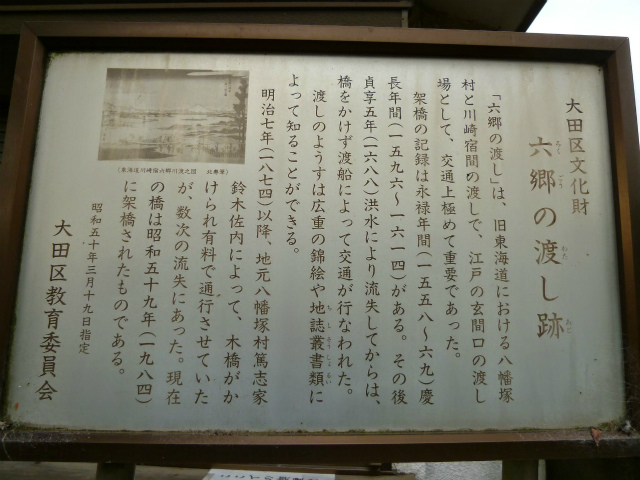 大田区文化財
六郷の渡し跡
ろく ごう わた あと
「六郷の渡し」は、旧東海道における八幡塚
村と川崎宿間の渡しで、江戸の玄関口の渡し
場として、交通上極めて重要であった。
架橋の記録は永禄年間(一五五八〜六九)慶
長年間(一五九六〜一六一四)がある。その後
貞享五年(一六八八)洪水により流失してからは、
橋をかけず渡船によって交通が行なわれた。
渡しのようすは広重の錦絵や地誌叢書類に
ち し そう しょ るい
よって知ることができる。
明治七年(一八七四)以降、地元八幡塚村篤志家
鈴木佐内によって、木橋がか
けられ有料で通行させていた
が、数次の流失にあった。現在
の橋は昭和五十九年(一九八四)
に架橋されたものである。
(東海道川崎宿六郷川渡之図 北寿筆)
昭和五十年三月十九日指定
大田区教育委員会